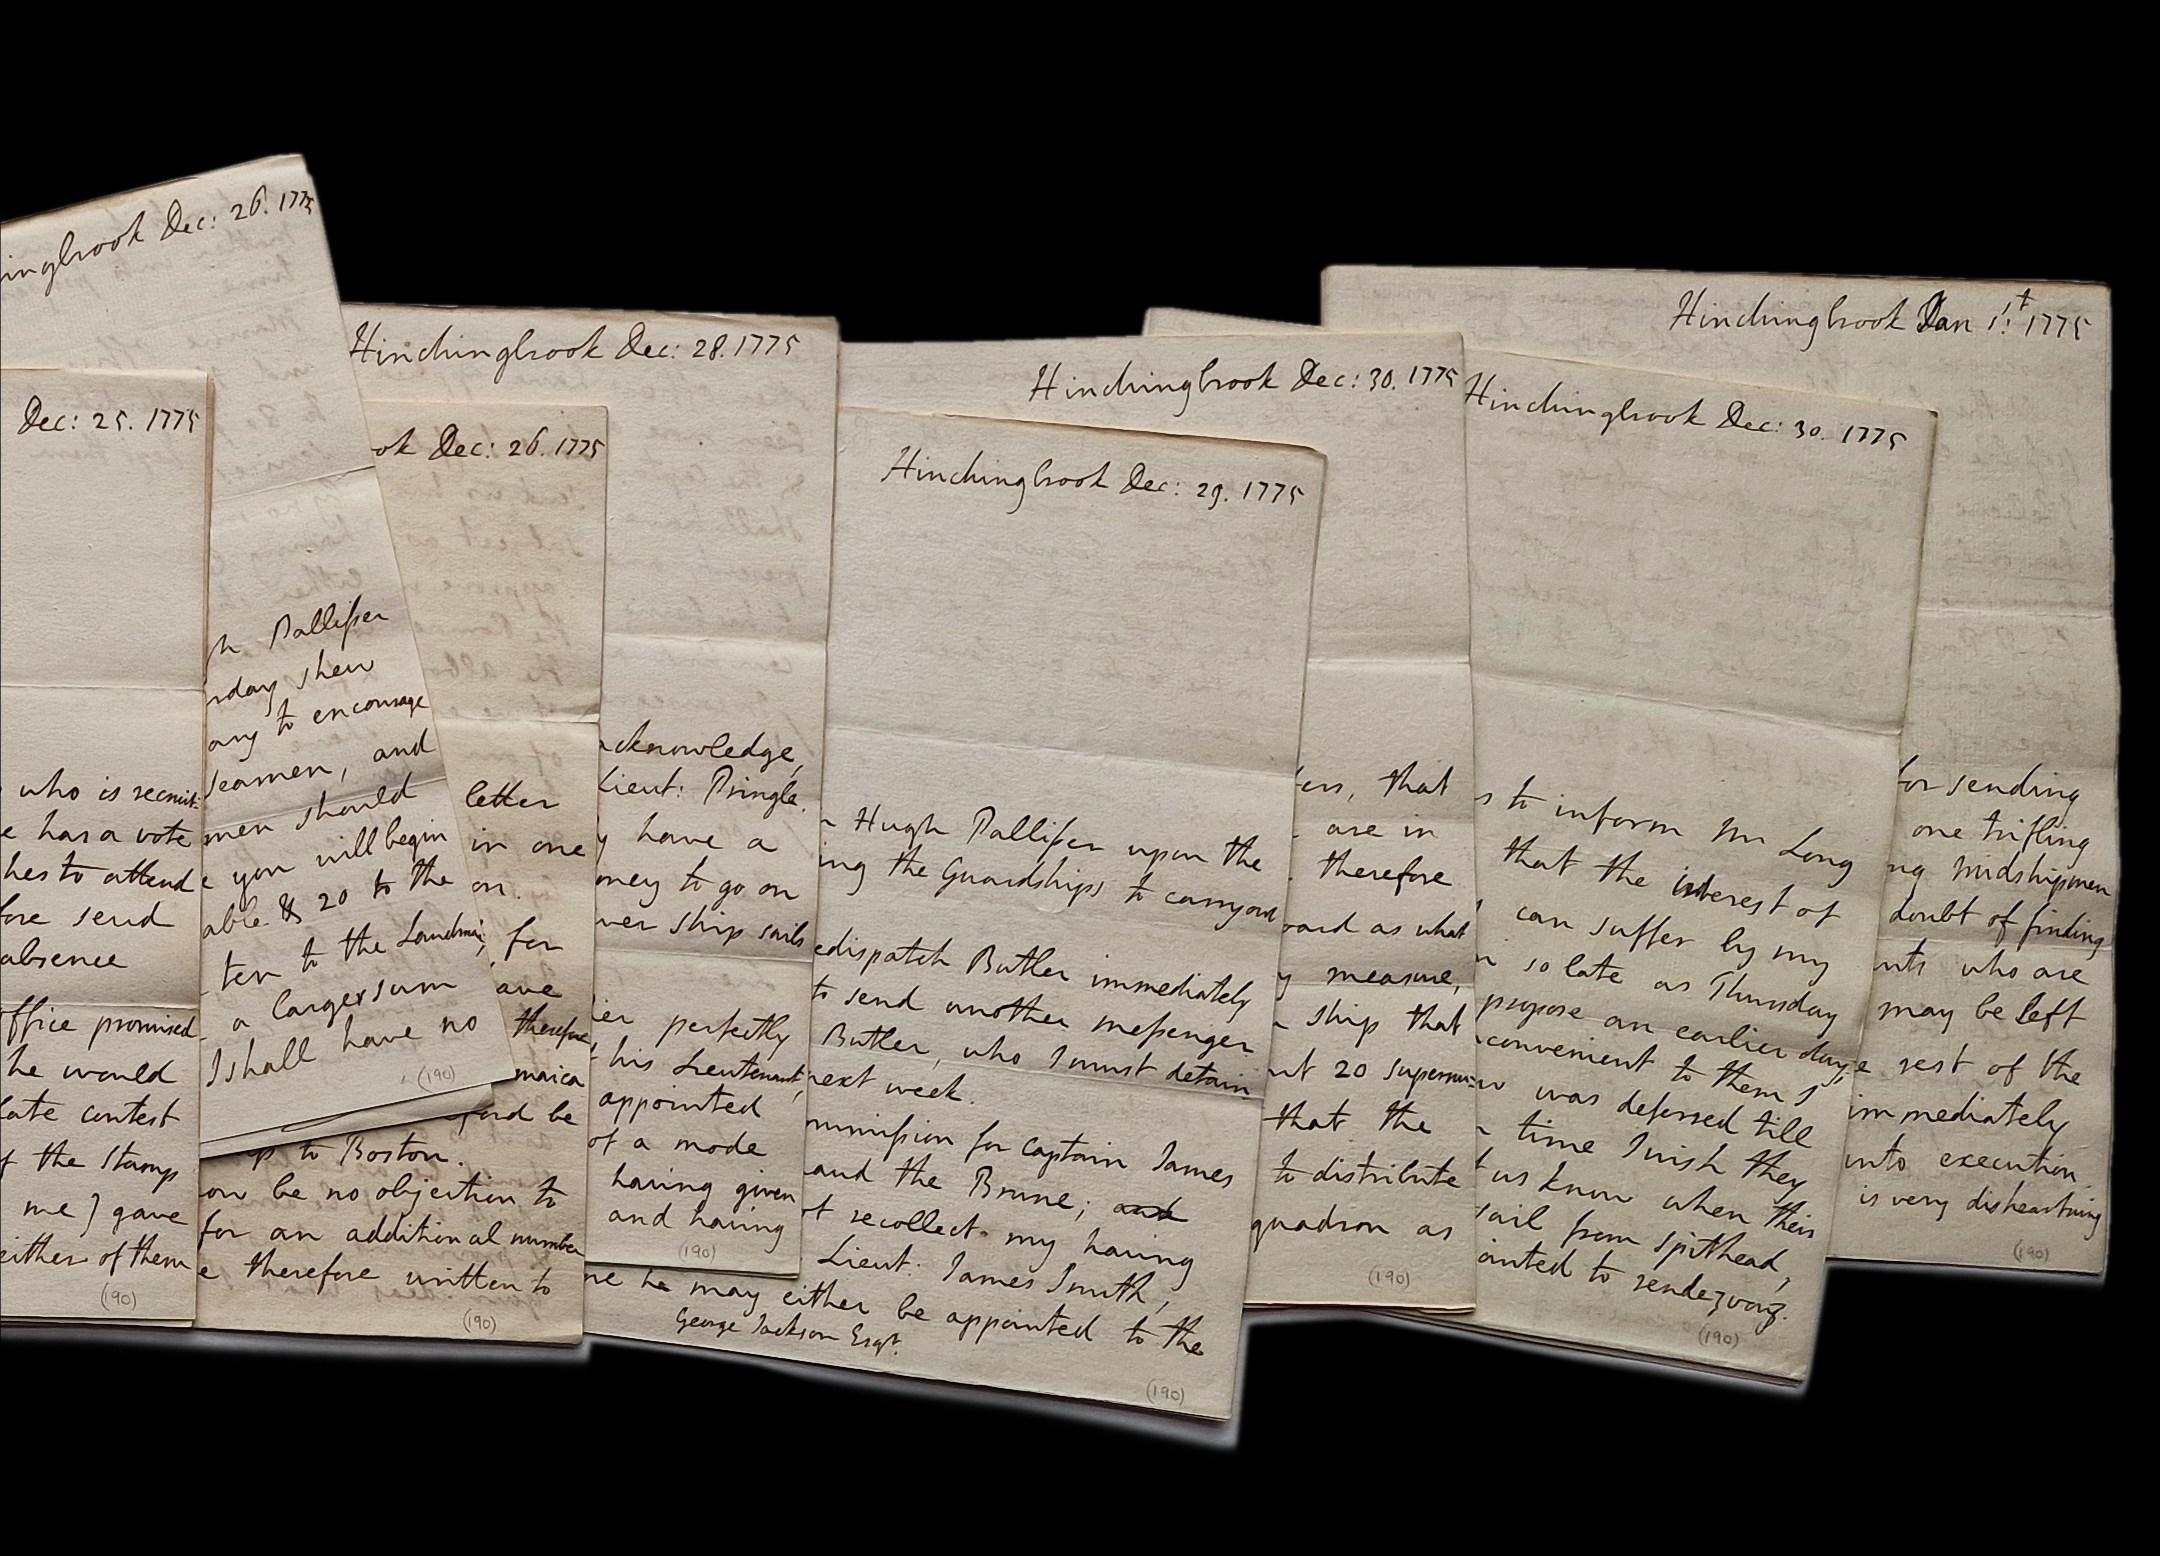 Dec: 25. 1775
who is recruit-
e has a vote
hes to attend
fore send
absence
ffice promised
he would
late contest
f the Stamp
me) gave
either of them
(190)
ingbrook Dec: 26. 1775
h Palliser
nday shew
ary to encourage
Seamen, and
men should
e you will begin
able & 20 to the
ten to the Landmen,
a larger sum
I shall have no
(190)
ok Dec: 26. 1775
letter
in one
on.
for
ave
therefore
maica
ford be
p to Boston.
ow be no objection to
for an additional number
e therefore written to
(190)
Hinchingbrook Dec: 28. 1775
acknowledge,
Lieut: Pringle.
y have a
oney to go on
ver ship sails
ier perfectly
his Lieutenant,
appointed
of a mode
having given
and having
(190)
Hinchingbrook Dec: 29. 1775
r Hugh Palliser upon the
ing the Guardships to carry out
edispatch Butler immediately
to send another messenger
Butler, who I must detain
next week.
mmission for Captain James
and the Brune; and
ot recollect my having
Lieut: James Smith,
ne he may either be appointed to the
George Jackson Esqr.
(190)
Hinchingbrook Dec: 30. 1775
ers, that
are in
therefore
oard as what
y measure,
ship that
ut 20 supernu-
that the
to distribute
quadron as
(190)
Hinchingbrook Dec: 30. 1775
s to inform Mr Long
that the interest of
can suffer by my
so late as Thursday
propose an earlier day,
convenient to them I
was deferred till
time I wish they
t us know when their
sail from Spithead,
ointed to rendezvouz.
(190)
Hinchingbrook Jan 1st: 1775
for sending
one trifling
ng midshipmen
doubt of finding
nts who are
may be left
e rest of the
immediately
into execution
is very disheartning
(190)